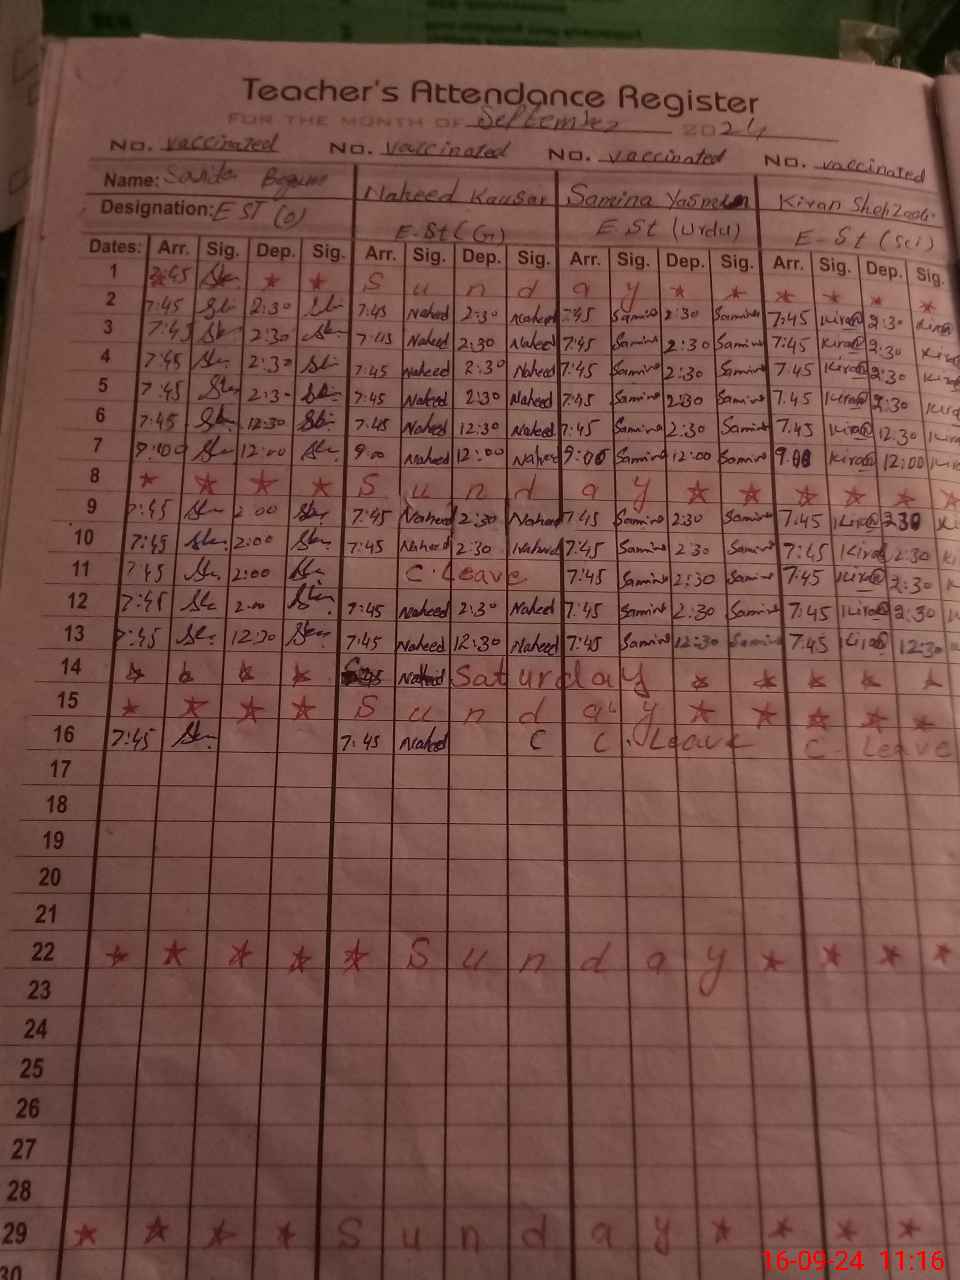 Teacher's Attendance Register
FOR THE MONTH OF September 2024
No. vaccinated No. vaccinated No. vaccinated No. vaccinated
Name: Begum Naheed Kausar Samina Yasmeen Kiran Shehzadi
Designation: EST (O) E-St (G) E.St (Urdu) E-St (Sci)
Dates: Arr. Sig. Dep. Sig. Arr. Sig. Dep. Sig. Arr. Sig. Dep. Sig. Arr. Sig. Dep. Sig.
1 7:45 * * S u n d a y * * * * * *
2 7:45 2:30 7:45 Naheed 2:30 Naheed 7:45 Samina 2:30 Samina 7:45 Kiran 2:30 Kiran
3 7:45 2:30 7:45 Naheed 2:30 Naheed 7:45 Samina 2:30 Samina 7:45 Kiran 2:30
4 7:45 2:30 7:45 Naheed 2:30 Naheed 7:45 Samina 2:30 Samina 7:45 Kiran 2:30
5 7:45 2:30 7:45 Naheed 2:30 Naheed 7:45 Samina 2:30 Samina 7.45 Kiran 2:30
6 7:45 12:30 7:45 Naheed 12:30 Naheed 7:45 Samina 2:30 Samina 7:45 Kiran 12:30
7 9:00 12:00 9:00 Naheed 12:00 Naheed 9:00 Samina 12:00 Samina 9:00 Kiran 12:00
8 * * * * S u n d a y * * * * * *
9 7:45 2:00 7:45 Naheed 2:30 Naheed 7:45 Samina 2:30 Samina 7:45 Kiran 2:30
10 7:45 2:00 7:45 Naheed 2:30 Naheed 7:45 Samina 2:30 Samina 7:45 Kiran 2:30
11 7:45 2:00 C. Leave 7:45 Samina 2:30 Samina 7:45 Kiran 2:30
12 7:45 2:00 7:45 Naheed 2:30 Naheed 7:45 Samina 2:30 Samina 7:45 Kiran 2:30
13 7:45 12:30 7:45 Naheed 12:30 Naheed 7:45 Samina 12:30 Samina 7:45 Kiran 12:30
14 * * * * Naheed Saturday * * * * *
15 * * * * S u n d a y * * * * *
16 7:45 7:45 Naheed C C. Leave C. Leave
17
18
19
20
21
22 * * * * * S u n d a y * * * *
23
24
25
26
27
28
29 * * * * S u n d a y * * * *
30
16-09-24 11:16